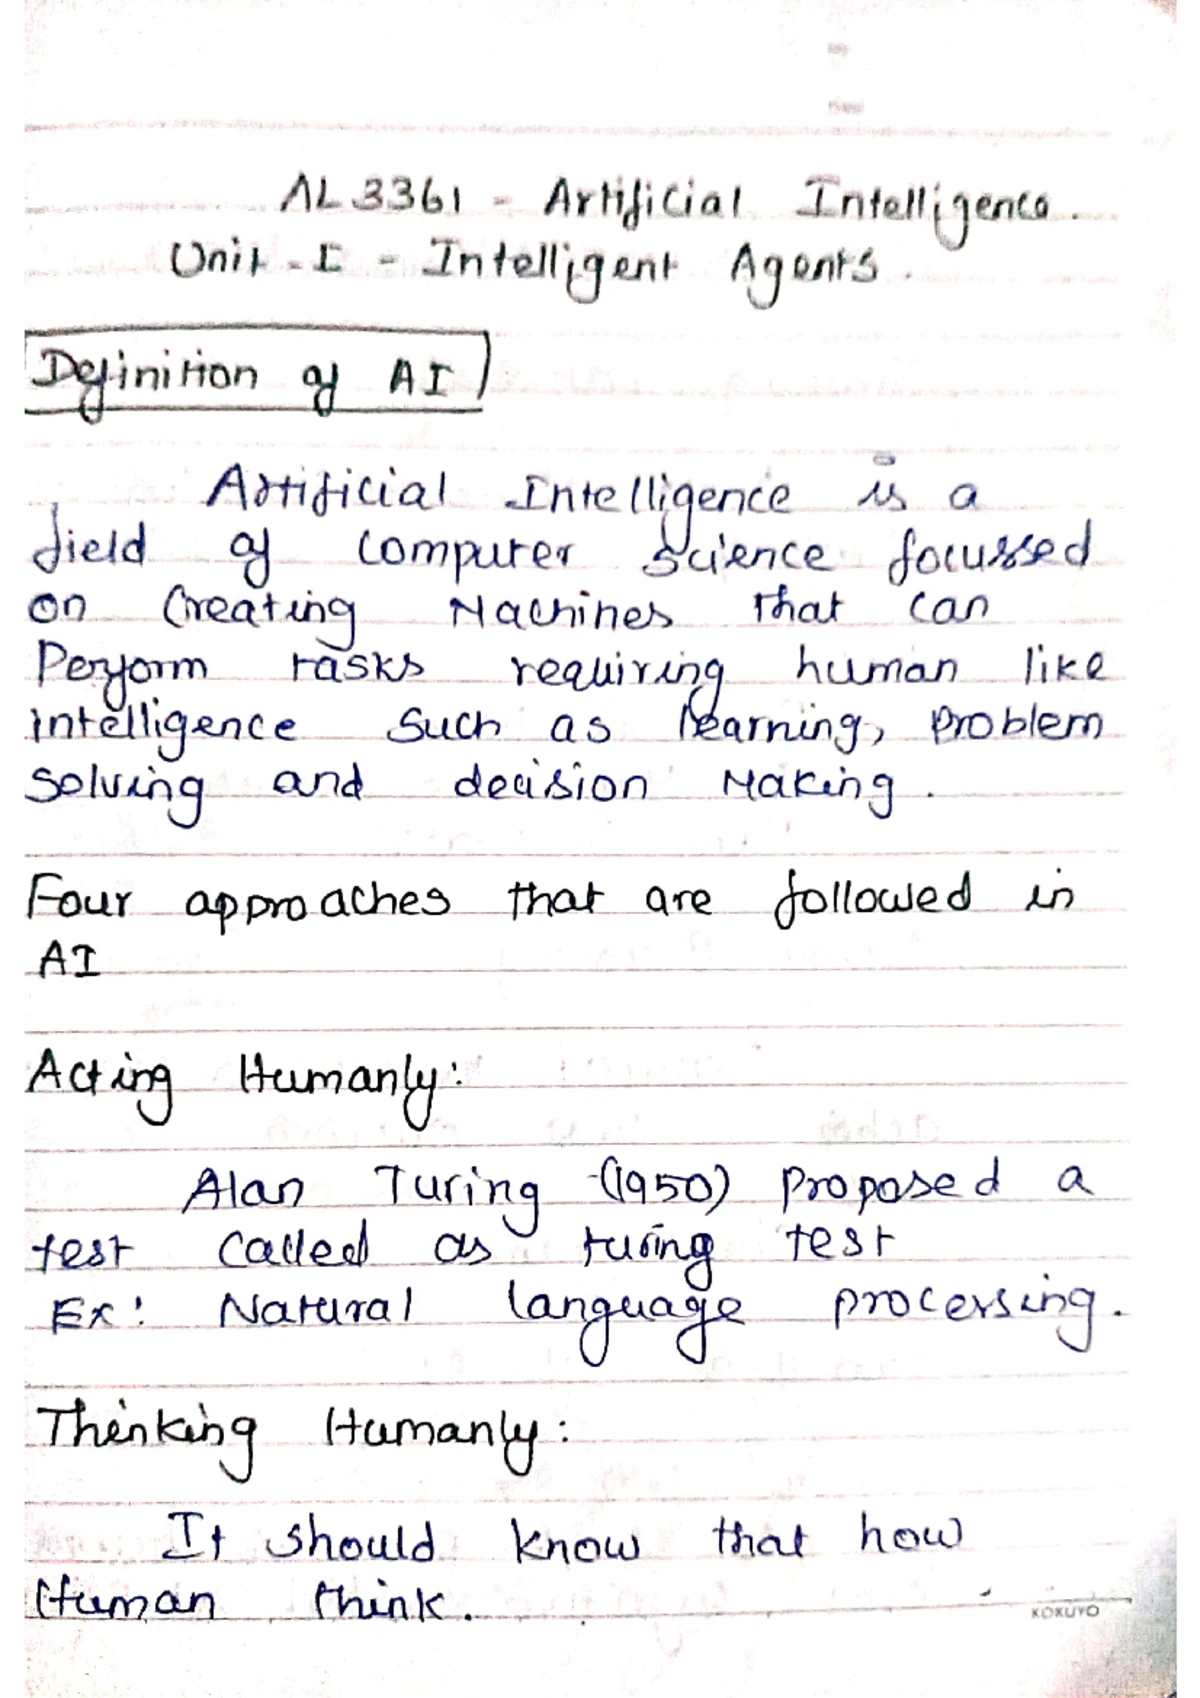 AL3361 - Artificial Intelligence.
Unit - I - Intelligent Agents.
Definition of AI
Artificial Intelligence is a
field of computer science focussed
on Creating Machines that can
Perform tasks requiring human like
intelligence such as learning, problem
solving and decision Making.
Four approaches that are followed in
AI
Acting Humanly:
Alan Turing (1950) proposed a
test called as turing test
Ex: Natural language processing.
Thinking Humanly:
It should know that how
Human think.
KOKUYO